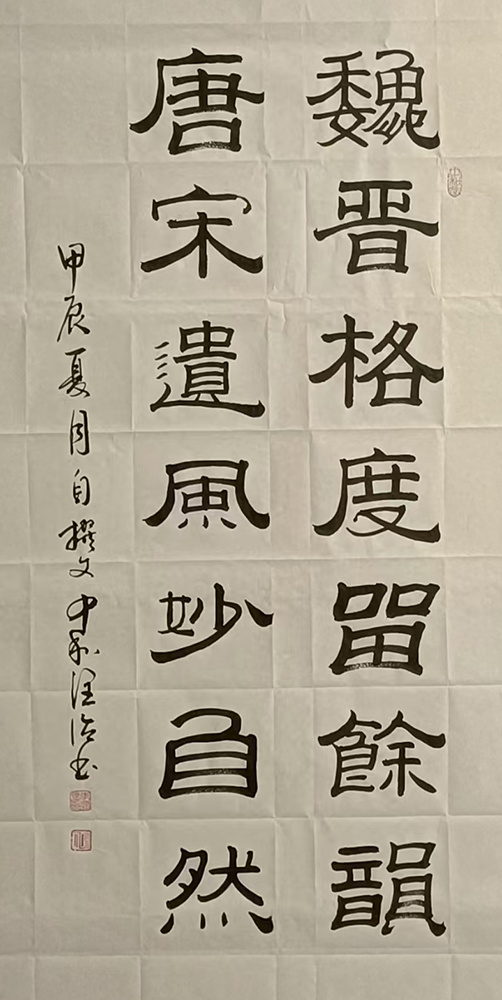 魏晋格度畱餘韻
唐宋遺風妙自然
甲辰夏月自撰文中利汪治书